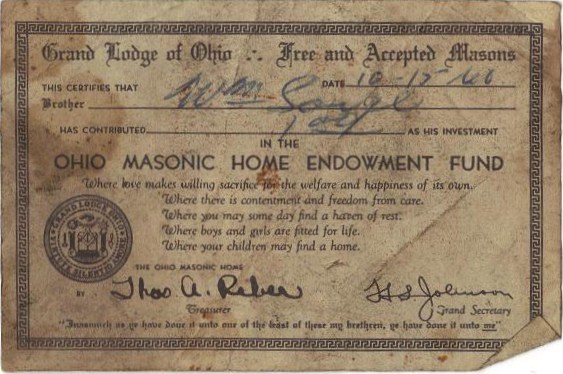 Grand Lodge of Ohio ∴ Free and Accepted Masons
THIS CERTIFIES THAT DATE 10-15
Brother Wm
HAS CONTRIBUTED AS HIS INVESTMENT
IN THE
OHIO MASONIC HOME ENDOWMENT FUND
Where love makes willing sacrifice for the welfare and happiness of its own.
Where there is contentment and freedom from care.
Where you may some day find a haven of rest.
Where boys and girls are fitted for life.
Where your children may find a home.
GRAND LODGE OHIO
THE OHIO MASONIC HOME
BY Thos A. Reber H S Johnson
Treasurer Grand Secretary
"Inasmuch as ye have done it unto one of the least of these my brethren, ye have done it unto me"